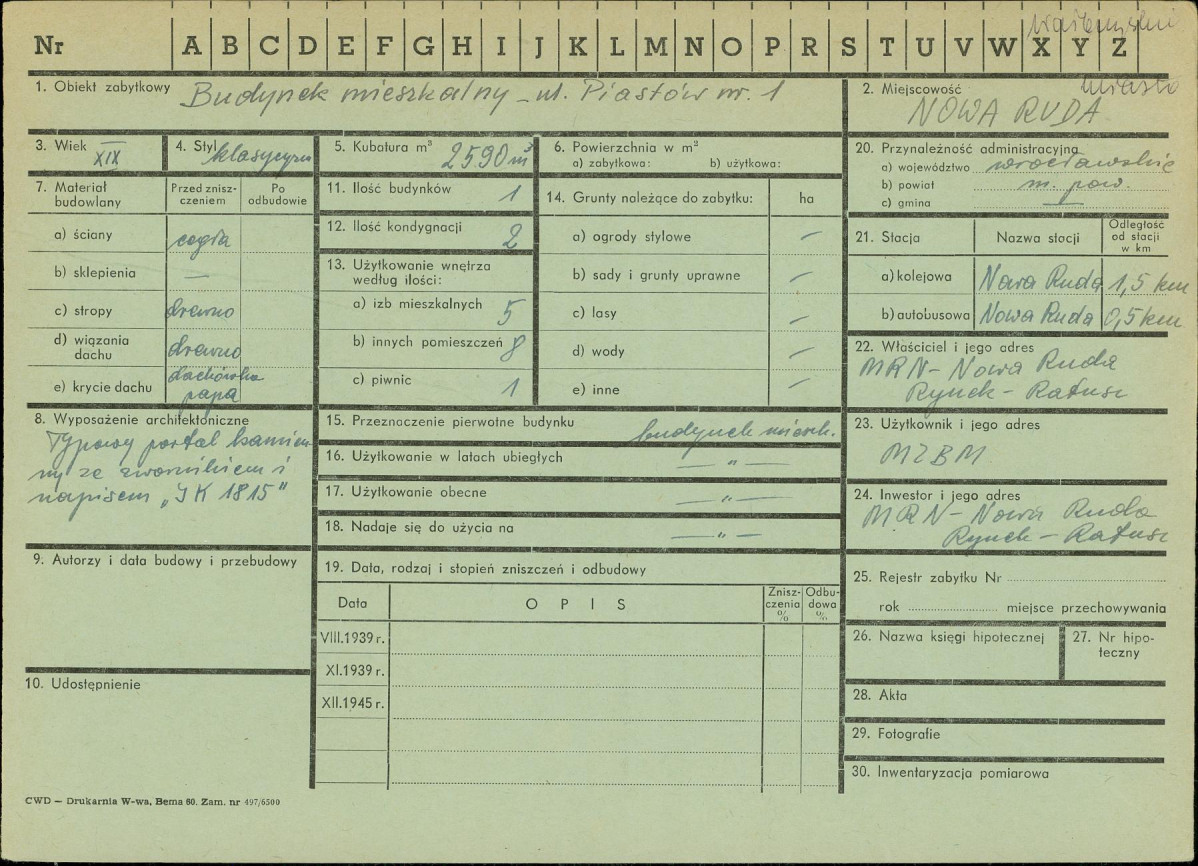 Nr A B C D E F G H I J K L M N O P R S T U V W X Y Z
1. Obiekt zabytkowy Budynek mieszkalny - ul. Piastów nr. 1
2. Miejscowość miasto
NOWA RUDA
3. Wiek XIX
4. Styl klasycyzm
5. Kubatura m³ 2590 m³
6. Powierzchnia w m²
a) zabytkowa: b) użytkowa:
7. Materiał budowlany
Przed zniszczeniem
Po odbudowie
a) ściany cegła
b) sklepienia —
c) stropy drewno
d) wiązania dachu drewno
e) krycie dachu dachówka papa
8. Wyposażenie architektoniczne
Typowy portal kamien
ny ze zwornikiem i
napisem „JK 1815"
9. Autorzy i data budowy i przebudowy
10. Udostępnienie
11. Ilość budynków 1
12. Ilość kondygnacji 2
13. Użytkowanie wnętrza
według ilości:
a) izb mieszkalnych 5
b) innych pomieszczeń 8
c) piwnic 1
14. Grunty należące do zabytku: ha
a) ogrody stylowe —
b) sady i grunty uprawne —
c) lasy —
d) wody —
e) inne —
15. Przeznaczenie pierwotne budynku budynek mieszk.
16. Użytkowanie w latach ubiegłych — „ —
17. Użytkowanie obecne — „ —
18. Nadaje się do użycia na — „ —
19. Data, rodzaj i stopień zniszczeń i odbudowy
Data OPIS Zniszczenia % Odbudowa %
VIII.1939 r.
XI.1939 r.
XII.1945 r.
20. Przynależność administracyjna
a) województwo wrocławskie
b) powiat m. pow.
c) gmina —
21. Stacja Nazwa stacji Odległość od stacji w km
a) kolejowa Nowa Ruda 1,5 km
b) autobusowa Nowa Ruda 0,5 km
22. Właściciel i jego adres
MRN - Nowa Ruda
Rynek - Ratusz
23. Użytkownik i jego adres
MZBM
24. Inwestor i jego adres
MRN - Nowa Ruda
Rynek - Ratusz
25. Rejestr zabytku Nr
rok miejsce przechowywania
26. Nazwa księgi hipotecznej
27. Nr hipoteczny
28. Akta
29. Fotografie
30. Inwentaryzacja pomiarowa
CWD — Drukarnia W-wa, Bema 60. Zam. nr 497/6500